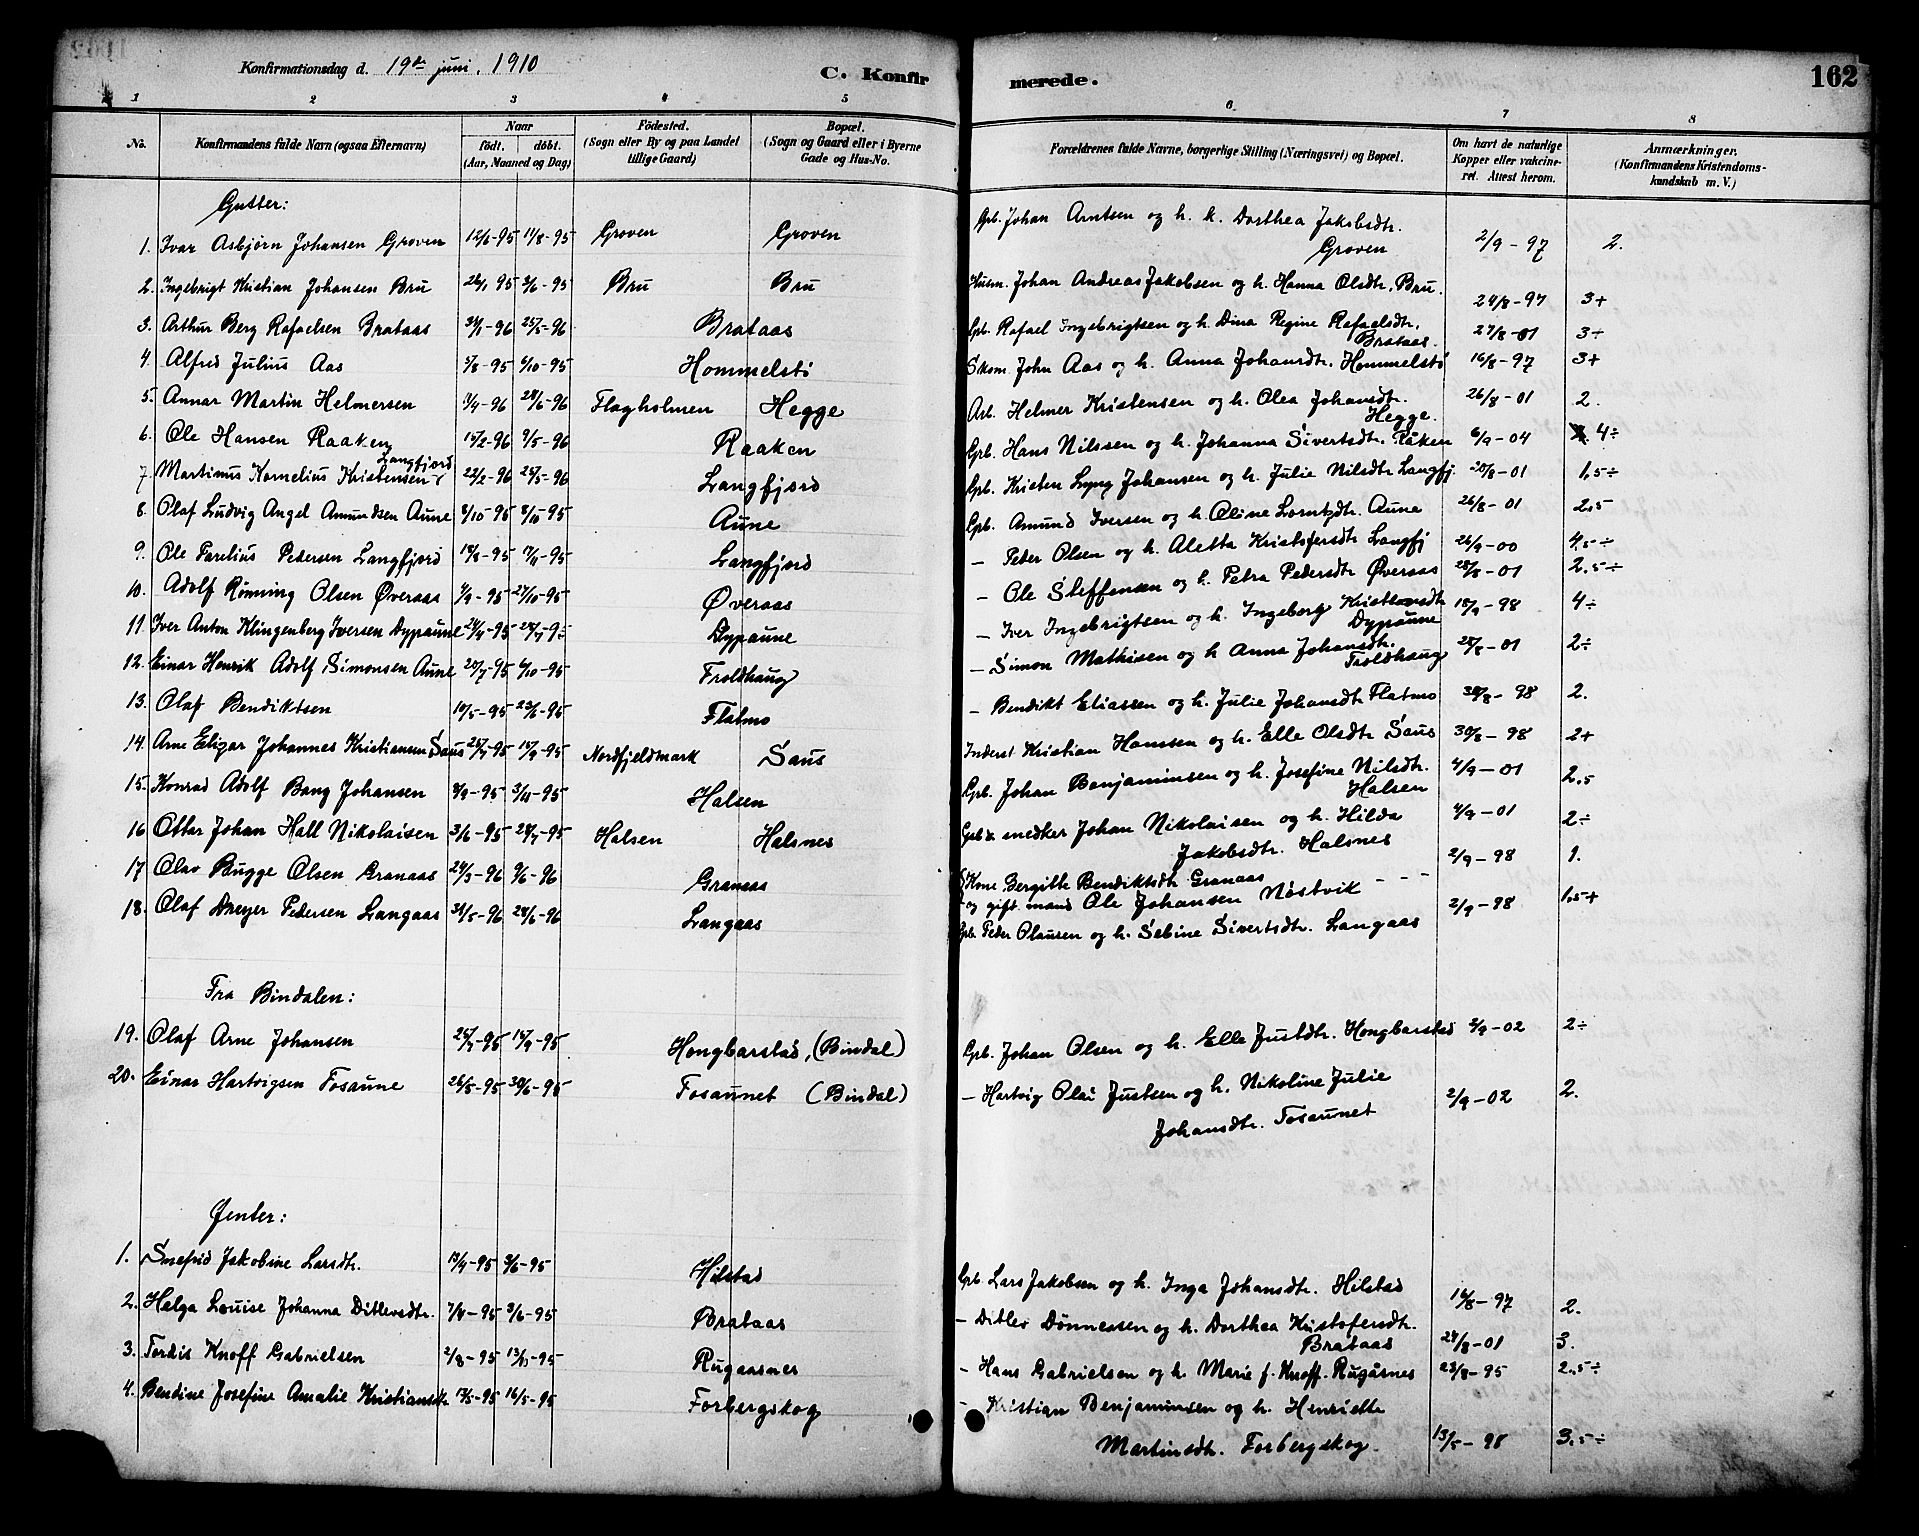 Konfirmationsdag d. 19de juni, 1910
C. Konfirmerede.
162
1 2 3 4 5 6 7 8
No. Konfirmandens fulde Navn (ogsaa Efternavn) Naar födt. döbt. (Aar, Maaned og Dag) Födested. (Sogn eller By og paa Landet tillige Gaard) Bopæl. (Sogn og Gaard eller i Byerne Gade og Hus-No. Forældrenes fulde Navne, borgerlige Stilling (Næringsvei) og Bopæl. Om havt de naturlige Kopper eller vakcineret. Attest herom. Anmærkninger. (Konfirmandens Kristendomskundskab m. V.)
Gutter:
1. Ivar Asbjørn Johansen Groven 12/6-95 11/8-95 Groven Groven Gpb. Johan Arntsen og h. k. Dorthea Jakobsdtr. Groven 2/9-97 2.
2. Ingebrigt Kristian Johansen Bru Bru Bru Husm. Johan Andreas Jakobsen og h. Hanna Olsdtr. Bru. 24/8-97 3+
3. Arthur Berg Rafaelsen Brataas Brataas Gpb. Rafael Ingebrigtsen og h. Dina Regine Rafaelsdtr. Brataas. 27/8-01 3÷
4. Alfred Julius Aas 5/8-95 6/10-95 Hommelstö Skom. John Aas og h. Anna Johansdtr. Hommelstö 16/8-97 3+
5. Annar Martin Helmersen 28/6-96 Flagholmen Hegge Arb. Helmer Kristensen og h. Olea Johansdtr. Hegge. 26/8-01 2.
6. Ole Hansen Raaken 9/5-96 Raaken Gpb. Hans Nilssen og h. Johanna Sivertsdtr. Råken 6/9-04 4÷
7. Martinus Kornelius Kristensen Langfjord 22/2-96 25/5-96 Langfjord Gpb. Kristen Lyng Johansen og h. Julie Nilsdtr Langfj. 1,5÷
8. Olaf Ludvig Angel Amundsen Aune 8/10-95 Aune Gpb. Amund Iversen og h. Oline Lorntzdtr. Aune 26/8-01 2.5
9. Ole Parelius Pedersen Langfjord Langfjord - Peder Olsen og h. Aletta Kristofersdtr Langfj 26/9-00 4,5÷
10. Adolf Rønning Olsen Øveraas 27/10-95 Øveraas - Ole Steffensen og h. Petra Pedersdtr Øveraas 28/8-01 2.5÷
11. Iver Anton Klingenberg Iversen Dypaune Dypaune - Iver Ingebrigtsen og h. Ingeborg Kristensdtr Dypaune 4÷
12. Einar Henrik Adolf Simonsen Aune 6/10-95 Troldhaug - Simon Mathisen og h Anna Johansdtr. Troldhaug 28/8-01 2÷
13. Olaf Bendiktsen 23/6-95 Flatmo - Bendikt Eliassen og h. Julie Johansdtr Flatmo 30/8-98 2.
14. Arne Eligar Johannes Kristiansen Saus Nordfjeldmark Saus Inderst Kristian Hanssen og h. Elle Olsdtr Saus 30/8-98 2+
15. Konrad Adolf Bang Johansen 3/11-95 Halsen Gpb. Johan Benjaminsen og h. Josefine Nilsdtr. Halsen 4/9-01 2.5
16 Ottar Johan Hall Nikolaisen 3/6-95 28/7-95 Halsen Halsnes Gpb & snedker Johan Nikolaisen og h. Hilda Jakobsdtr. Halsnes 4/9-01 2÷
17 Olav Bugge Olsen Granaas 24/3-96 Granaas Kone Bergitte Bendiktsdtr Granaas og gift mand Ole Johansen Nöstvik 2/9-98 1.
18. Olaf Dreyer Pedersen Langaas 31/5-96 28/6-96 Langaas Gpb. Peder Olausen og h. Sabine Sivertsdtr. Langaas 2/9-98 1,5+
Fra Bindalen:
19. Olaf Arne Johansen Hongbarstad, (Bindal) Gpb. Johan Olsen og h. Elle Justdtr. Hongbarstad 2/9-02 2÷
20. Einar Hartvigsen Fosaune 26/5-95 30/6-95 Fosaunet (Bindal) - Hartvig Olai Justsen og h. Nikoline Julie Johansdtr. Fosaunet 2/9-02 2.
Jenter:
1. Snefrid Jakobine Larsdtr. Hilstad Gpb. Lars Jakobsen og h. Inga Johansdtr. Hilstad 16/8-97 2.
2. Helga Louise Johanna Ditlevsdtr. 7/4-95 3/6-95 Brataas - Ditlev Dönnessen og h. Dorthea Kristofersdtr. Brataas 27/8-01 3.
3. Tordis Knoff Gabrielsen 2/8-95 13/10-95 Rugaasnes - Hans Gabrielsen og h. Marie f. Knoff. Rugåsnes 23/8-95 2.5÷
4. Bendine Josefine Amalie Kristiansdtr 16/5-95 Forbergskog - Kristian Benjaminsen og h. Henriette Martinsdtr. Forbergskog. 13/5-98 3.5÷